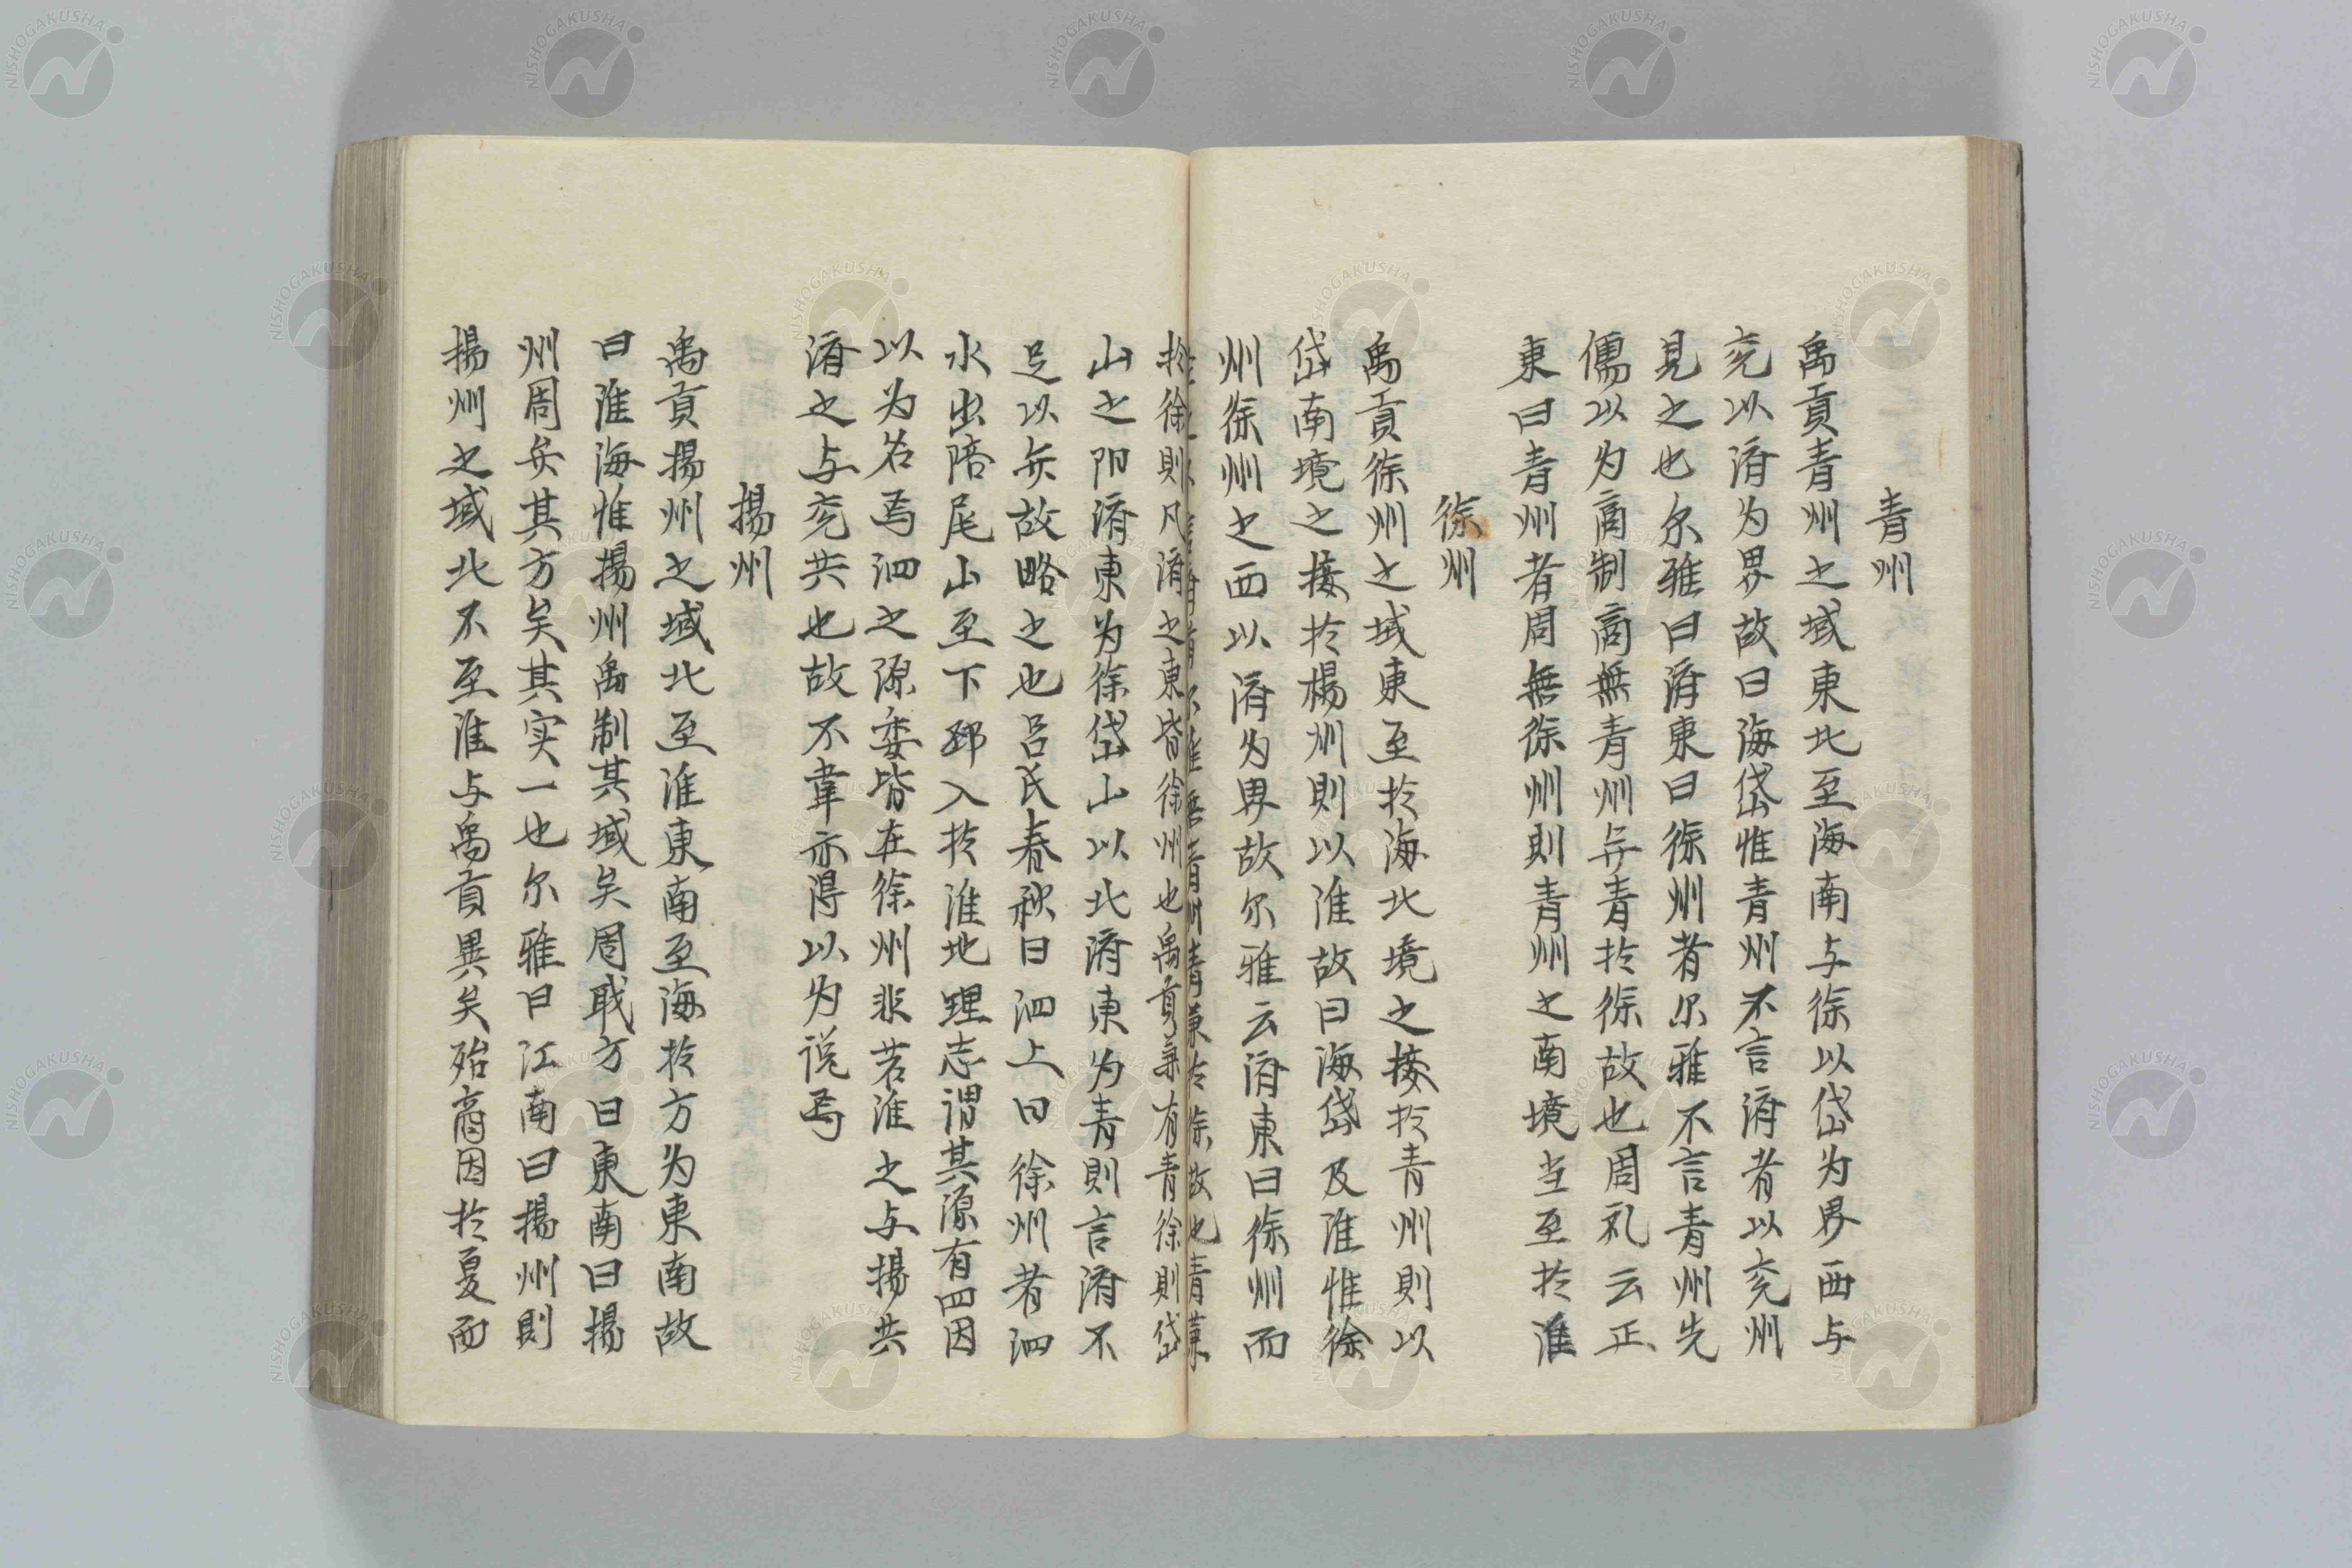 青州
禹貢青州之域東北至海南与徐以岱为界西与
兖以済为界故曰海岱惟青州不言済者以兖州
見之也尔雅曰済東曰徐州者尔雅不言青州先
儒以为商制商無青州并青於徐故也周礼云正
東曰青州者周無徐州則青州之南境当至於淮
徐州
禹貢徐州之域東至於海北境之接於青州則以
岱南境之接於楊州則以淮故曰海岱及淮惟徐
州徐州之西以済为界故尔雅云済東曰徐州而
尔雅無青州青兼於徐故也青兼
於徐則凡済之東皆徐州也禹貢兼有青徐則岱
山之阳済東为徐岱山以北済東为青則言済不
足以矣故略之也呂氏春秋曰泗上曰徐州者泗
水出陪尾山至下邳入於淮地理志謂其源有四因
以为名焉泗之源委皆在徐州非若淮之与揚共
済之与兖共也故不韋亦得以为説焉
揚州
禹貢揚州之域北至淮東南至海於方为東南故
曰淮海惟揚州禹制其域矣周職方曰東南曰揚
州周矣其方矣其実一也尔雅曰江南曰揚州則
揚州之域北不至淮与禹貢異矣殆商因於夏而
NISHOGAKUSHA